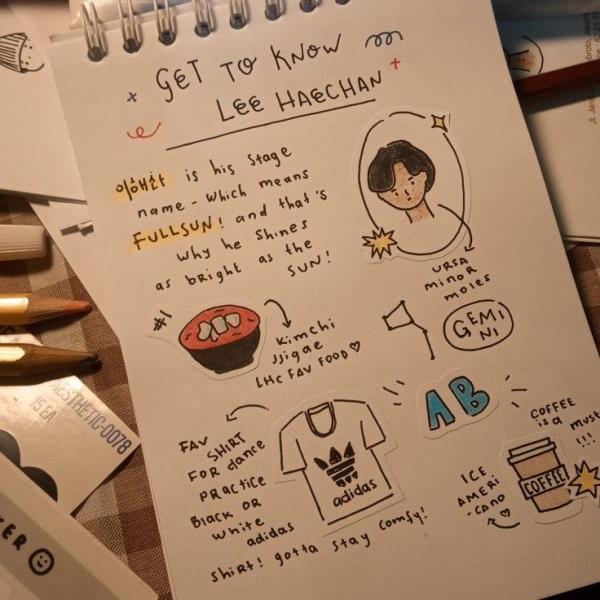 GET TO KNOW
LEE HAECHAN
이해찬 is his stage
name - which means
FULLSUN! and that's
why he shines
as bright as the
SUN!
URSA
minor
moles
#1
Kimchi
Jjigae
LHC FAV FOOD♡
GEMI
NI
AB
FAV SHIRT
FOR dance
practice
Black or
white
adidas
shirt! gotta stay comfy!
adidas
COFFEE
is a must
!!!
COFFEE
ICE
AMERI
-CANO ♡
AESTHETIC-0078
15EA